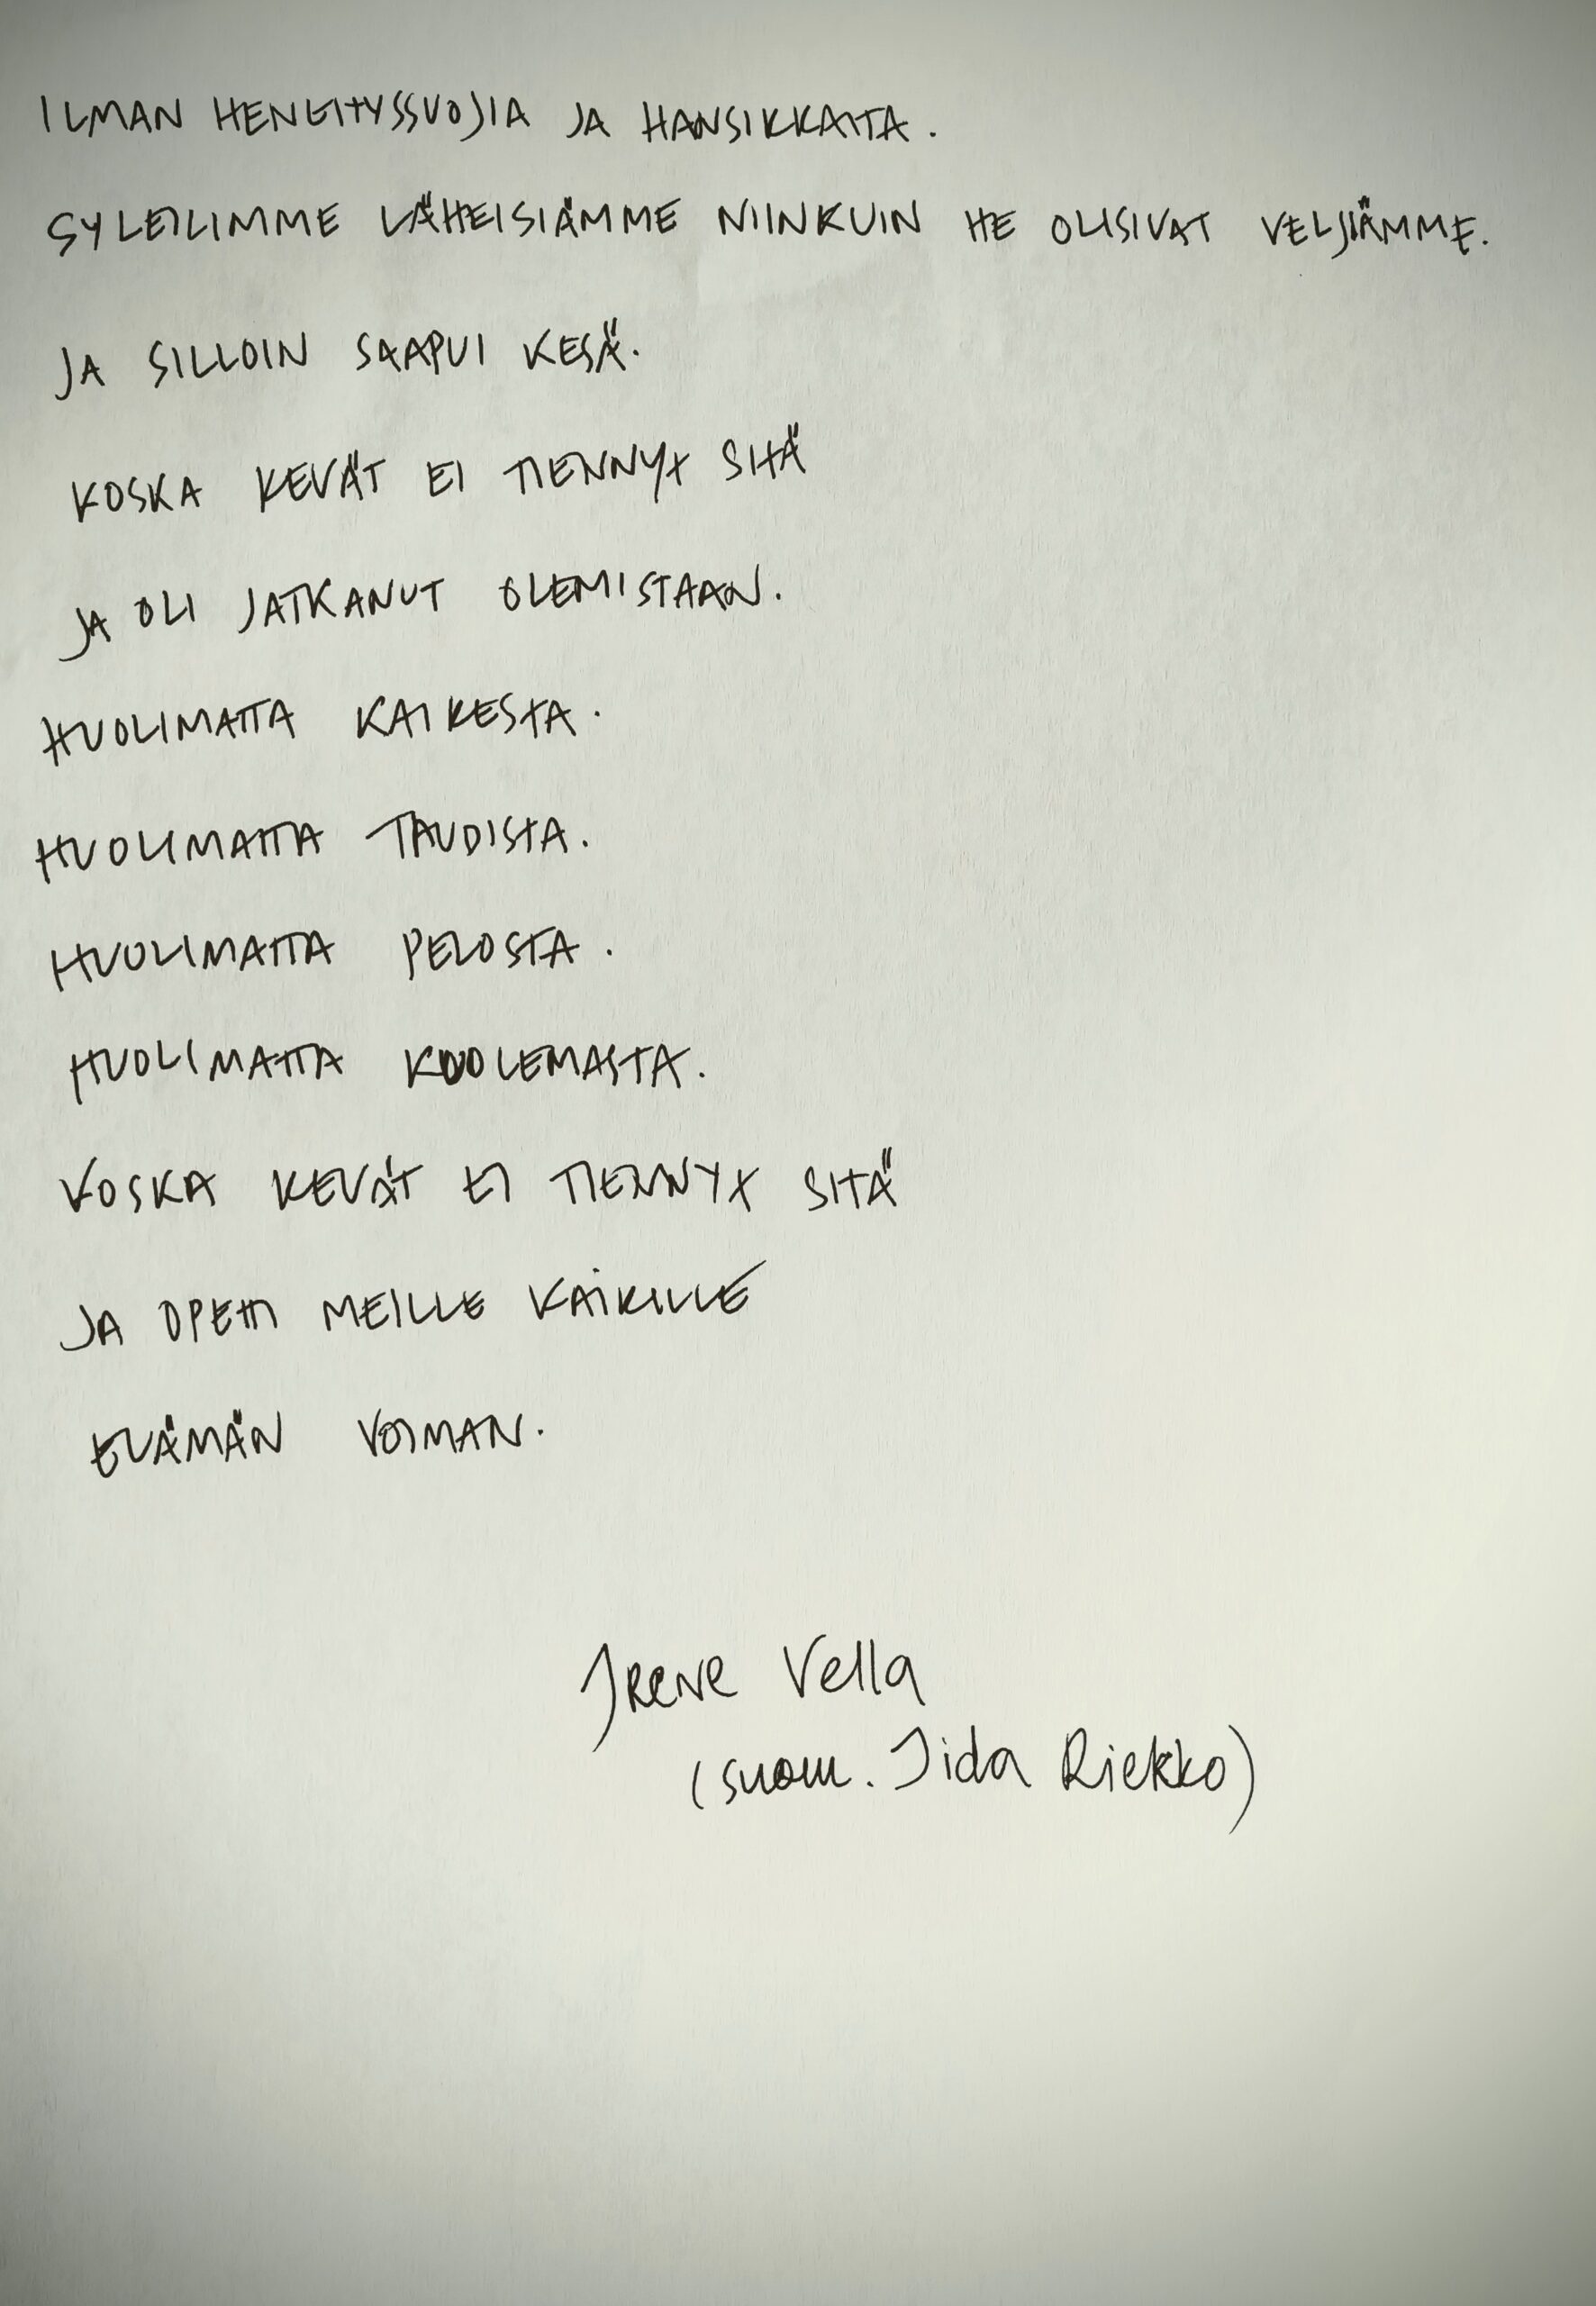 ILMAN HENGITYSSUOJIA JA HANSIKKAITA.
SYLEILIMME LÄHEISIÄMME NIINKUIN HE OLISIVAT VELJIÄMME.
JA SILLOIN SAAPUI KESÄ.
KOSKA KEVÄT EI TIENNYT SITÄ
JA OLI JATKANUT OLEMISTAAN.
HUOLIMATTA KAIKESTA.
HUOLIMATTA TAUDISTA.
HUOLIMATTA PELOSTA.
HUOLIMATTA KUOLEMASTA.
KOSKA KEVÄT EI TIENNYT SITÄ
JA OPETTI MEILLE KAIKILLE
ELÄMÄN VOIMAN.
Irene Vella
(suom. Iida Riekko)